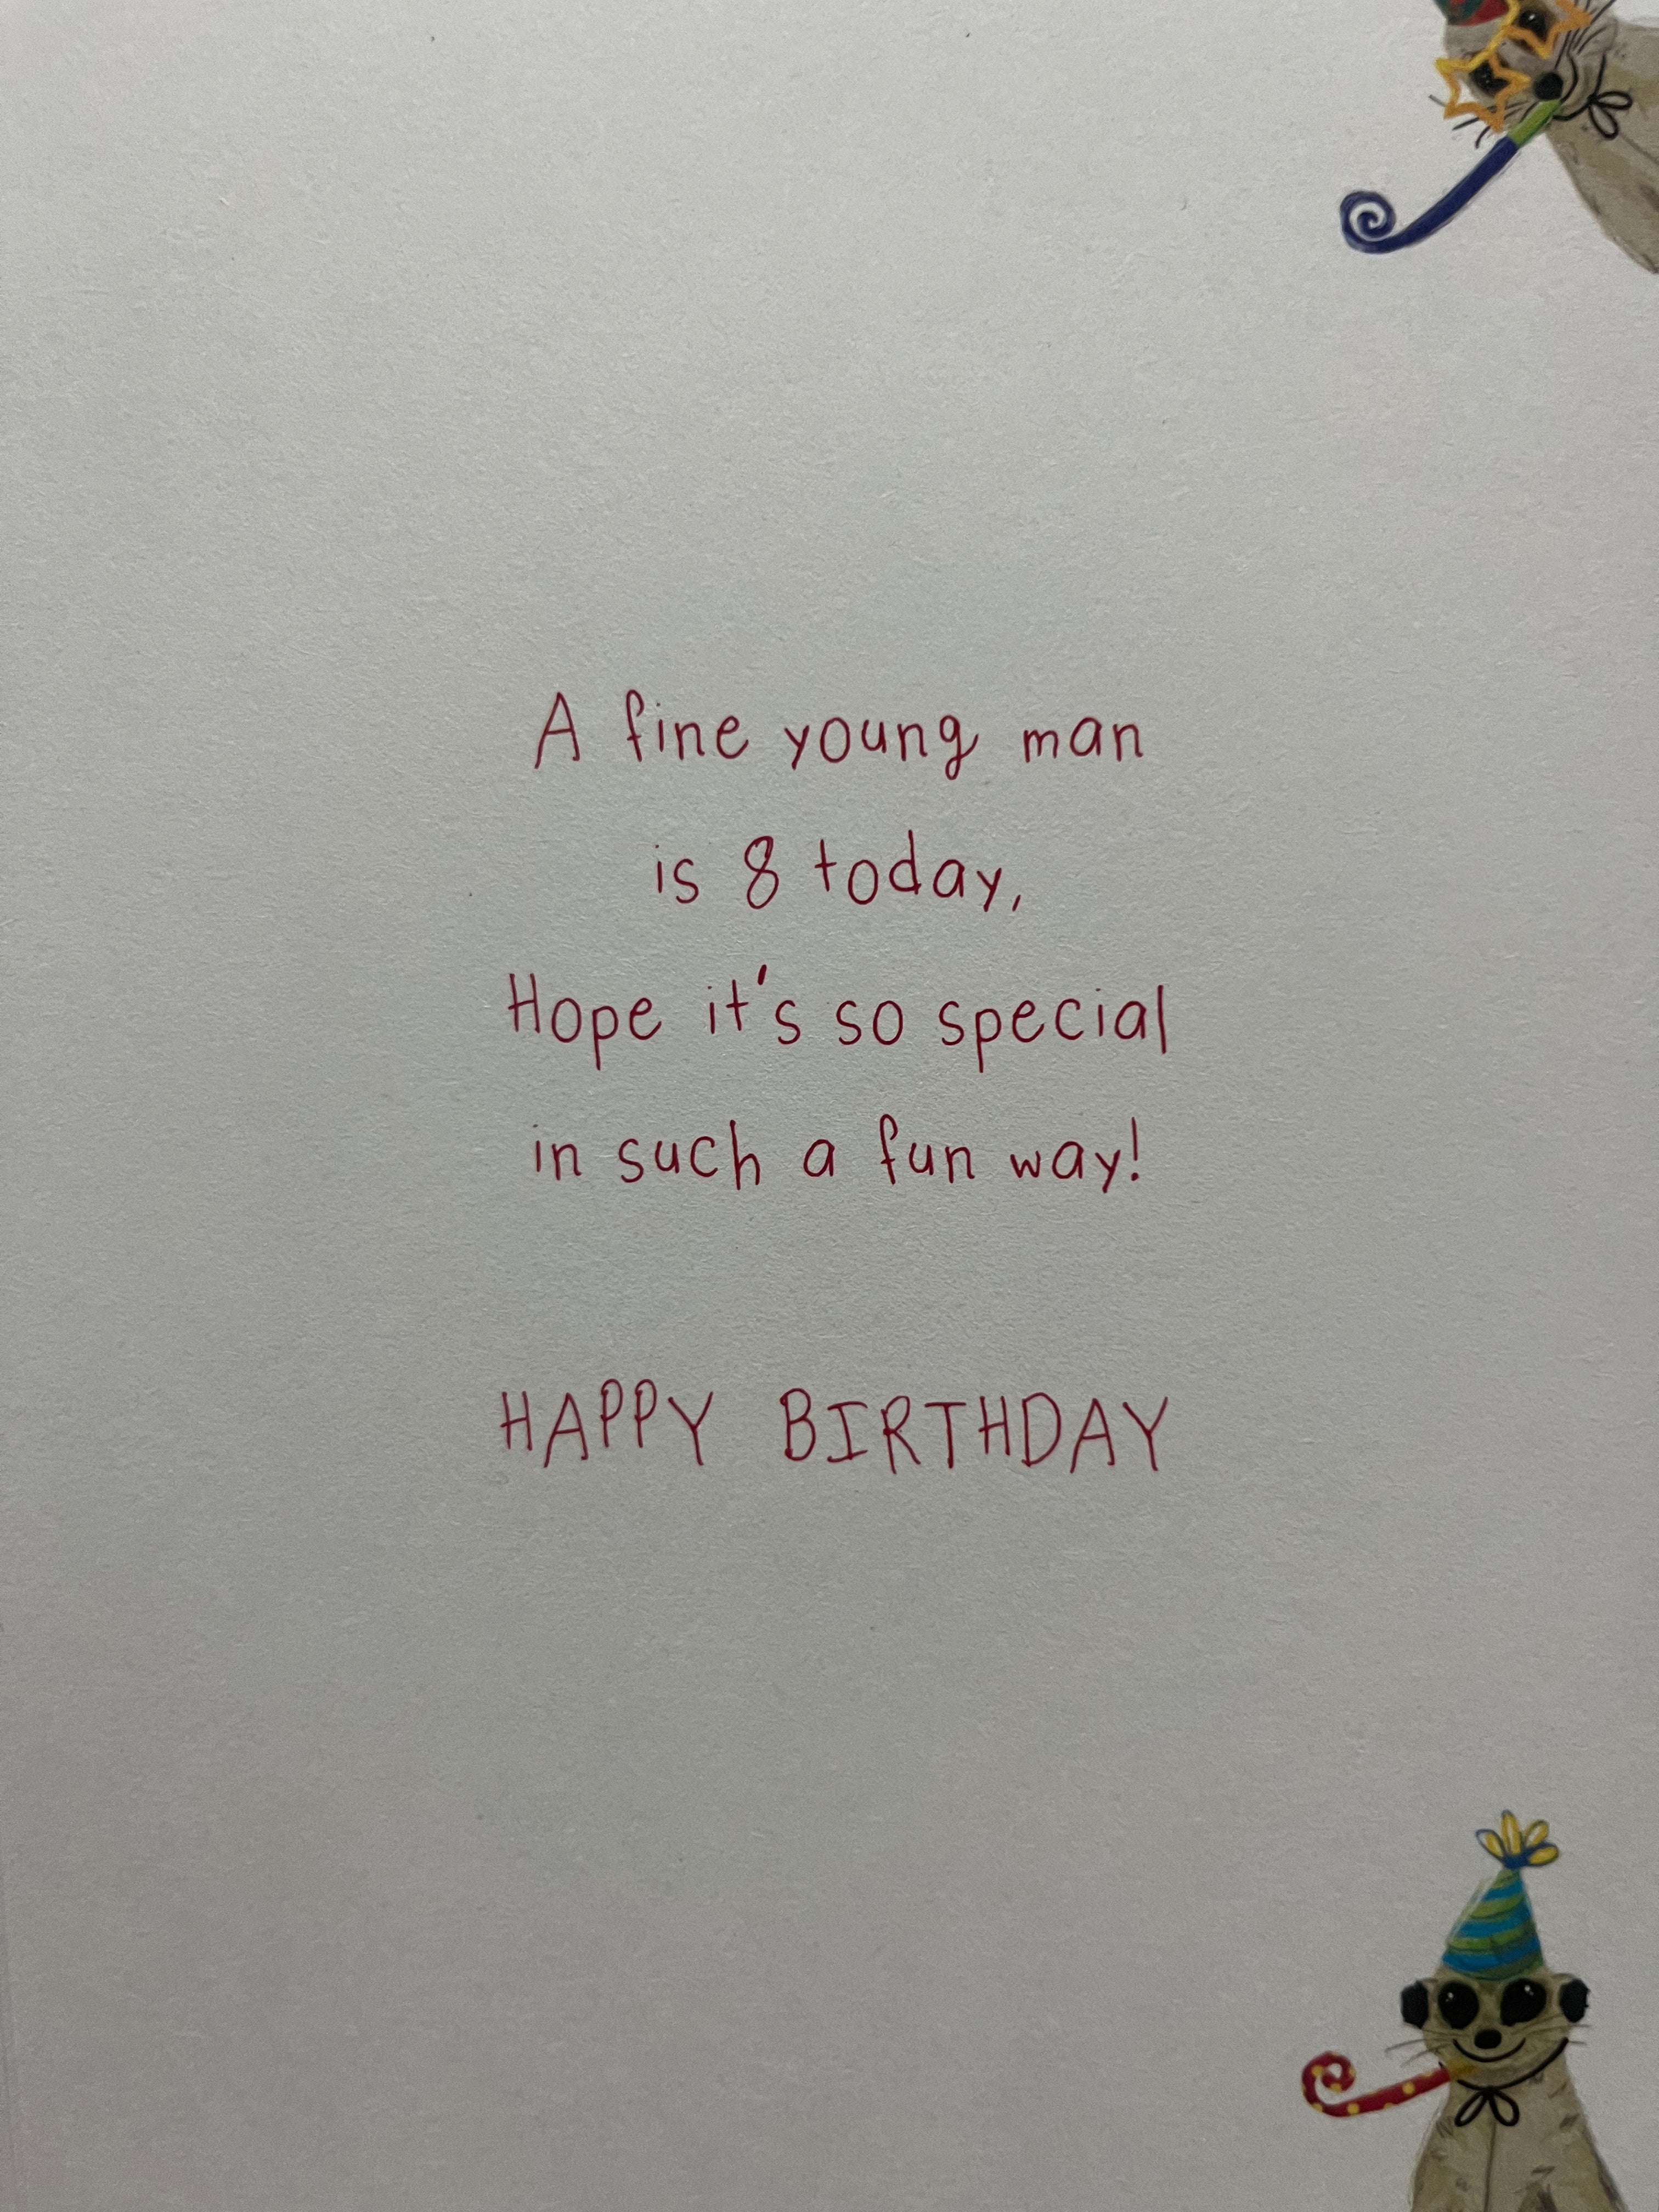 A fine young man
is 8 today,
Hope it's so special
in such a fun way!
HAPPY BIRTHDAY